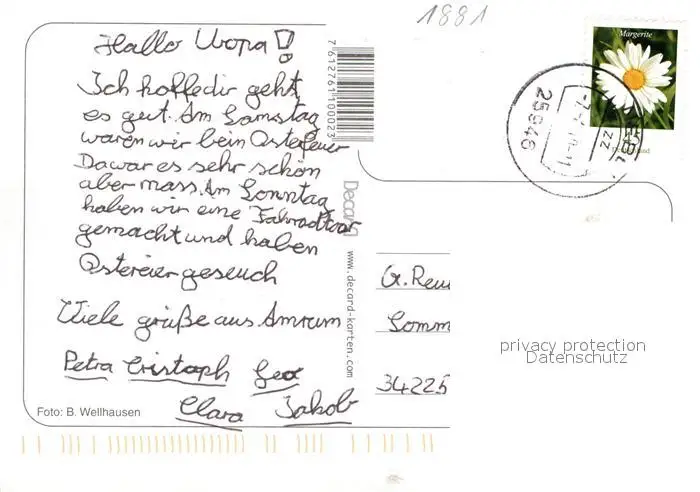 1881
Hallo Uropa!
Ich hoffe dir geht
es gut. Am Samstag
waren wir beim Osterfeuer
Da war es sehr schön
aber nass. Am Sonntag
haben wir eine Fahradtour
gemacht und haben
Ostereier geseuch
Viele grüße aus Amrum
Petra Cristoph
Clara Jakob
Foto: B. Wellhausen
7 612761 100023
Decard
www.decard-karten.com
Margerite
25946
G. Reu
Somm
34225
privacy protection
Datenschutz